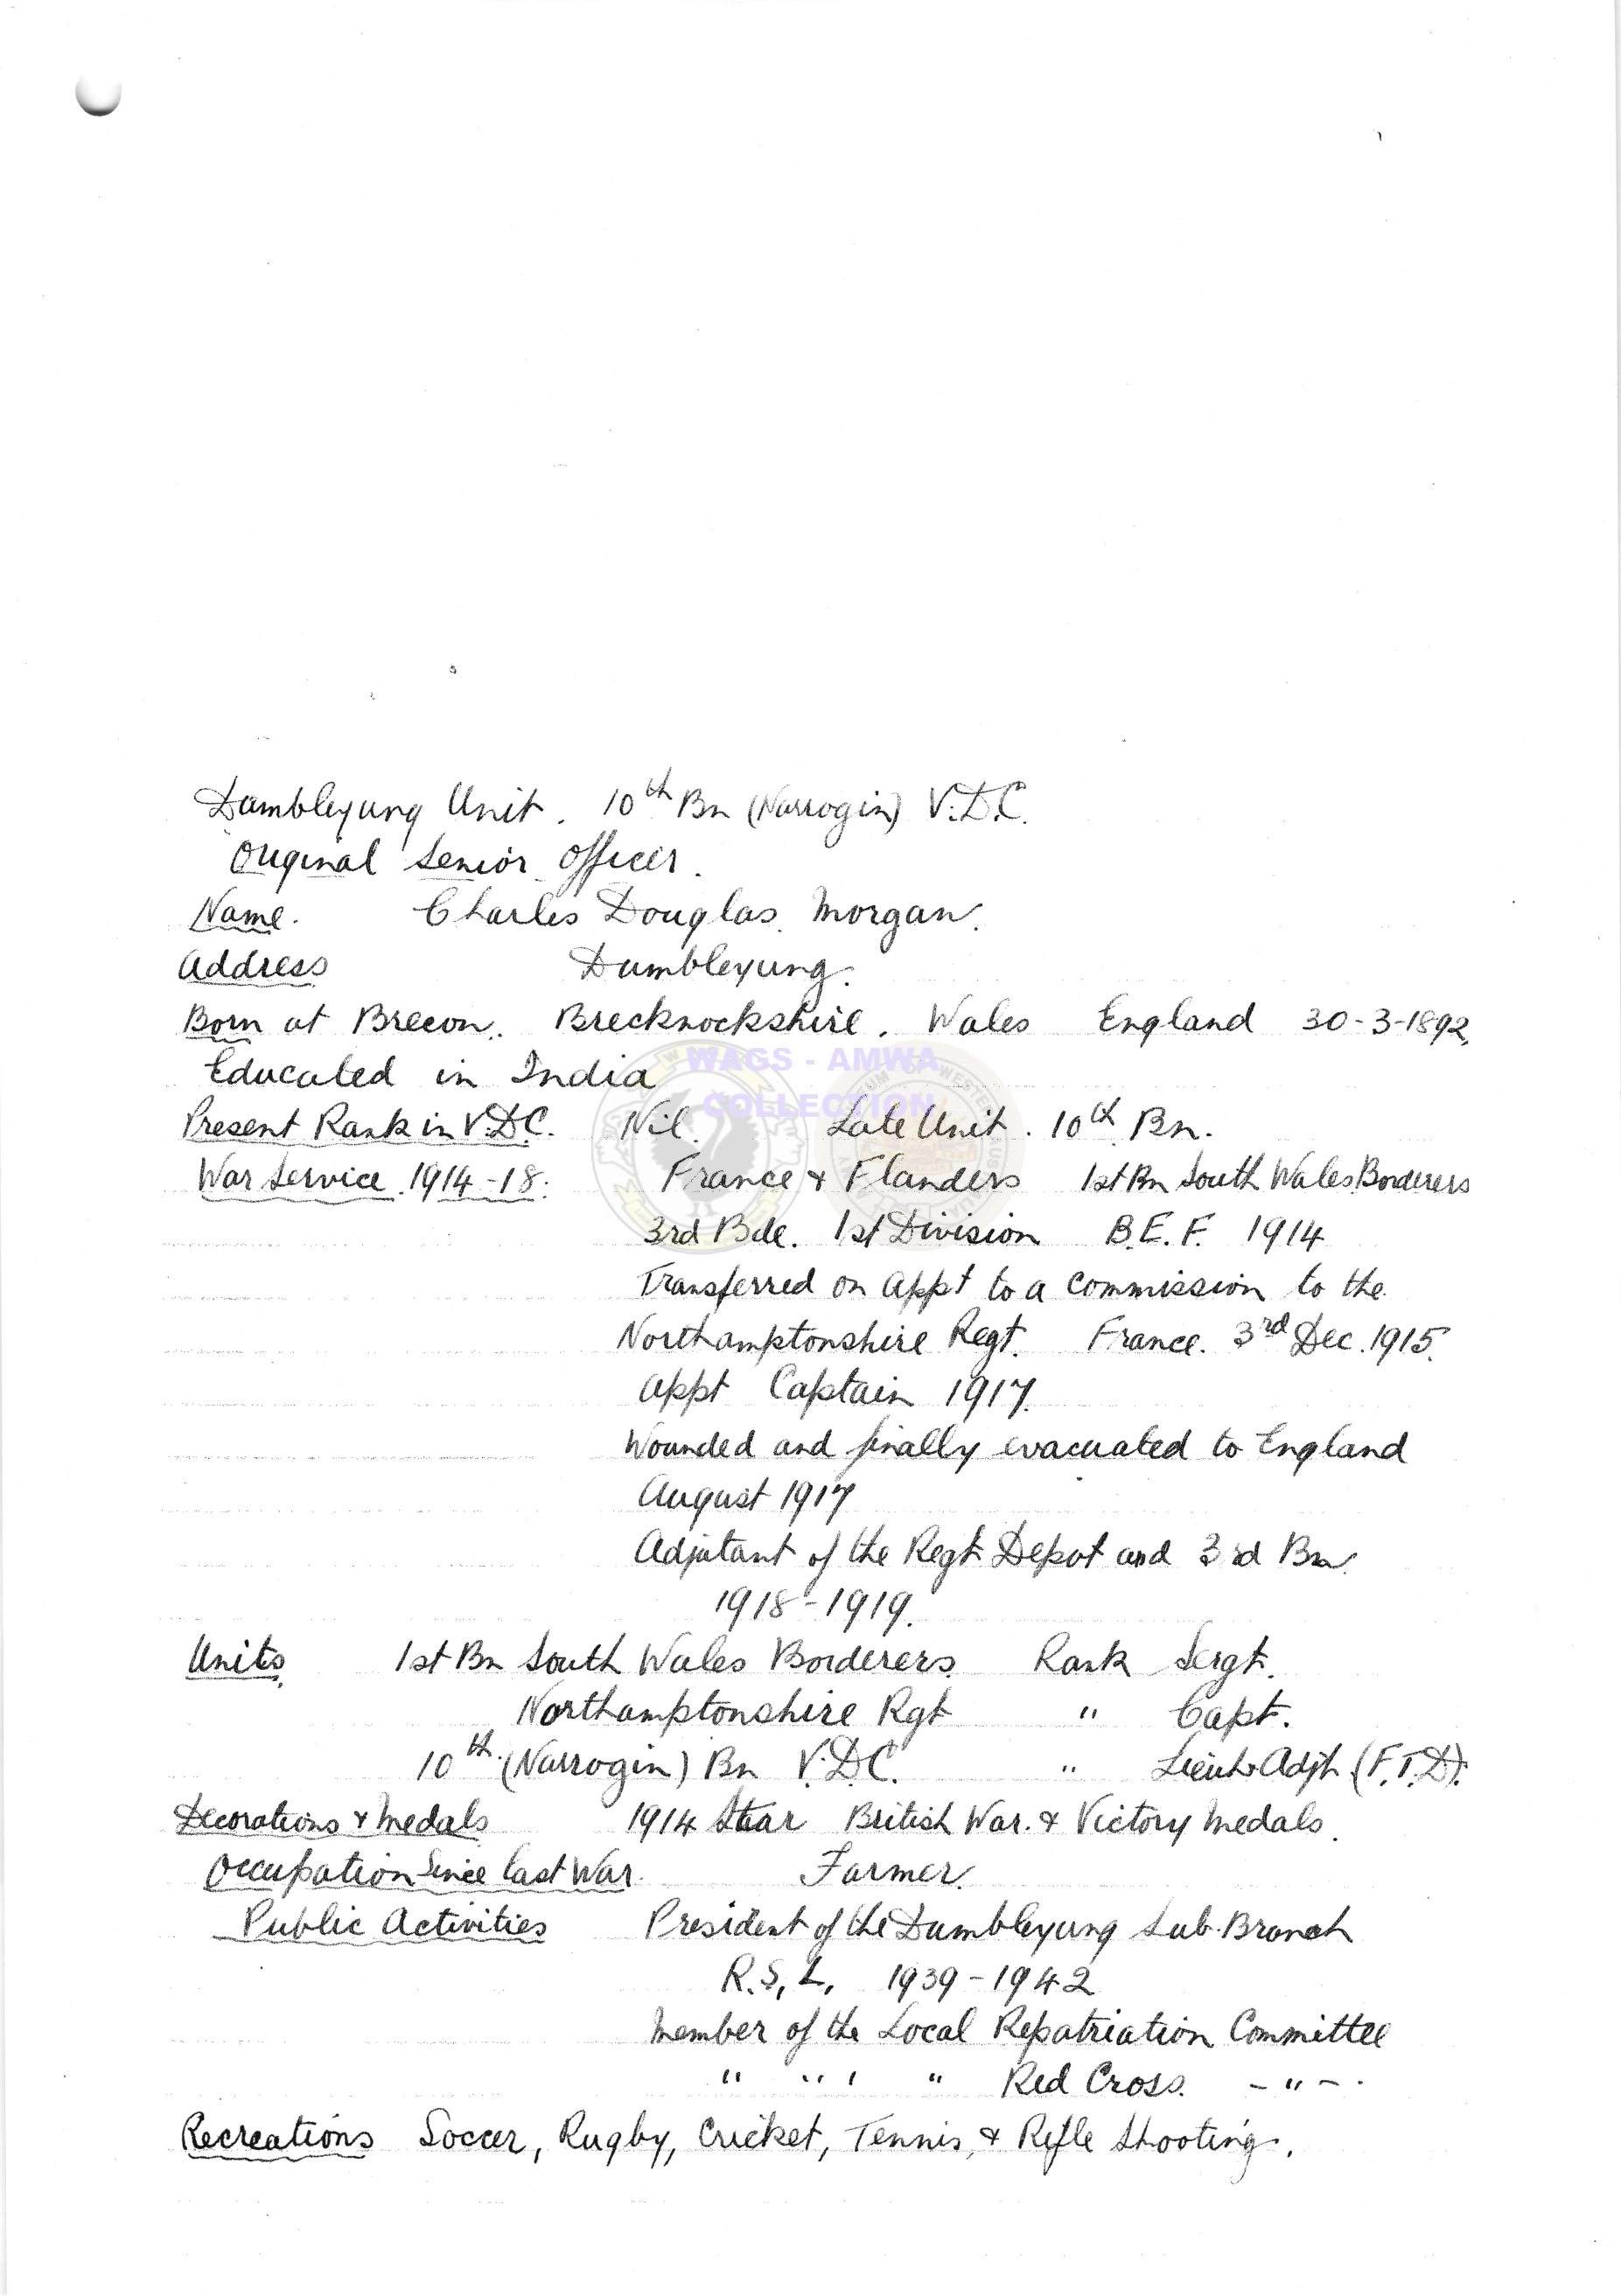 Dumbleyung Unit. 10th Bn (Narrogin) V.D.C.
Original Senior Officer.
Name. Charles Douglas Morgan.
Address Dumbleyung.
Born at Brecon. Brecknockshire. Wales England 30-3-1892.
Educated in India
WAGS - AMWA
COLLECTION
Present Rank in V.D.C. Nil. Late Unit. 10th Bn.
War Service. 1914-18. France & Flanders 1st Bn South Wales Borderers
3rd Bde. 1st Division B.E.F. 1914
Transferred on Appt to a Commission to the
Northamptonshire Regt. France. 3rd Dec. 1915.
Appt Captain 1917.
Wounded and finally evacuated to England
August 1917
Adjutant of the Regt Depot and 3rd Bn.
1918-1919.
Units 1st Bn South Wales Borderers Rank Sergt.
Northamptonshire Rgt " Capt.
10th (Narrogin) Bn V.D.C. " Lieut & Adjt (F.T.D).
Decorations & Medals 1914 Star British War. & Victory Medals.
Occupation Since last War. Farmer.
Public Activities President of the Dumbleyung Sub-Branch
R.S.L. 1939-1942
Member of the Local Repatriation Committee
" " " " Red Cross. - " - .
Recreations Soccer, Rugby, Cricket, Tennis, & Rifle Shooting.